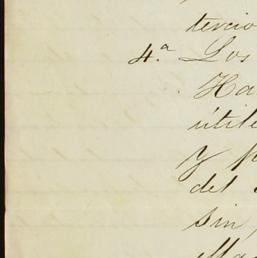 tercio
4.ª Los
Ha
útile
y p
del
sin
ella